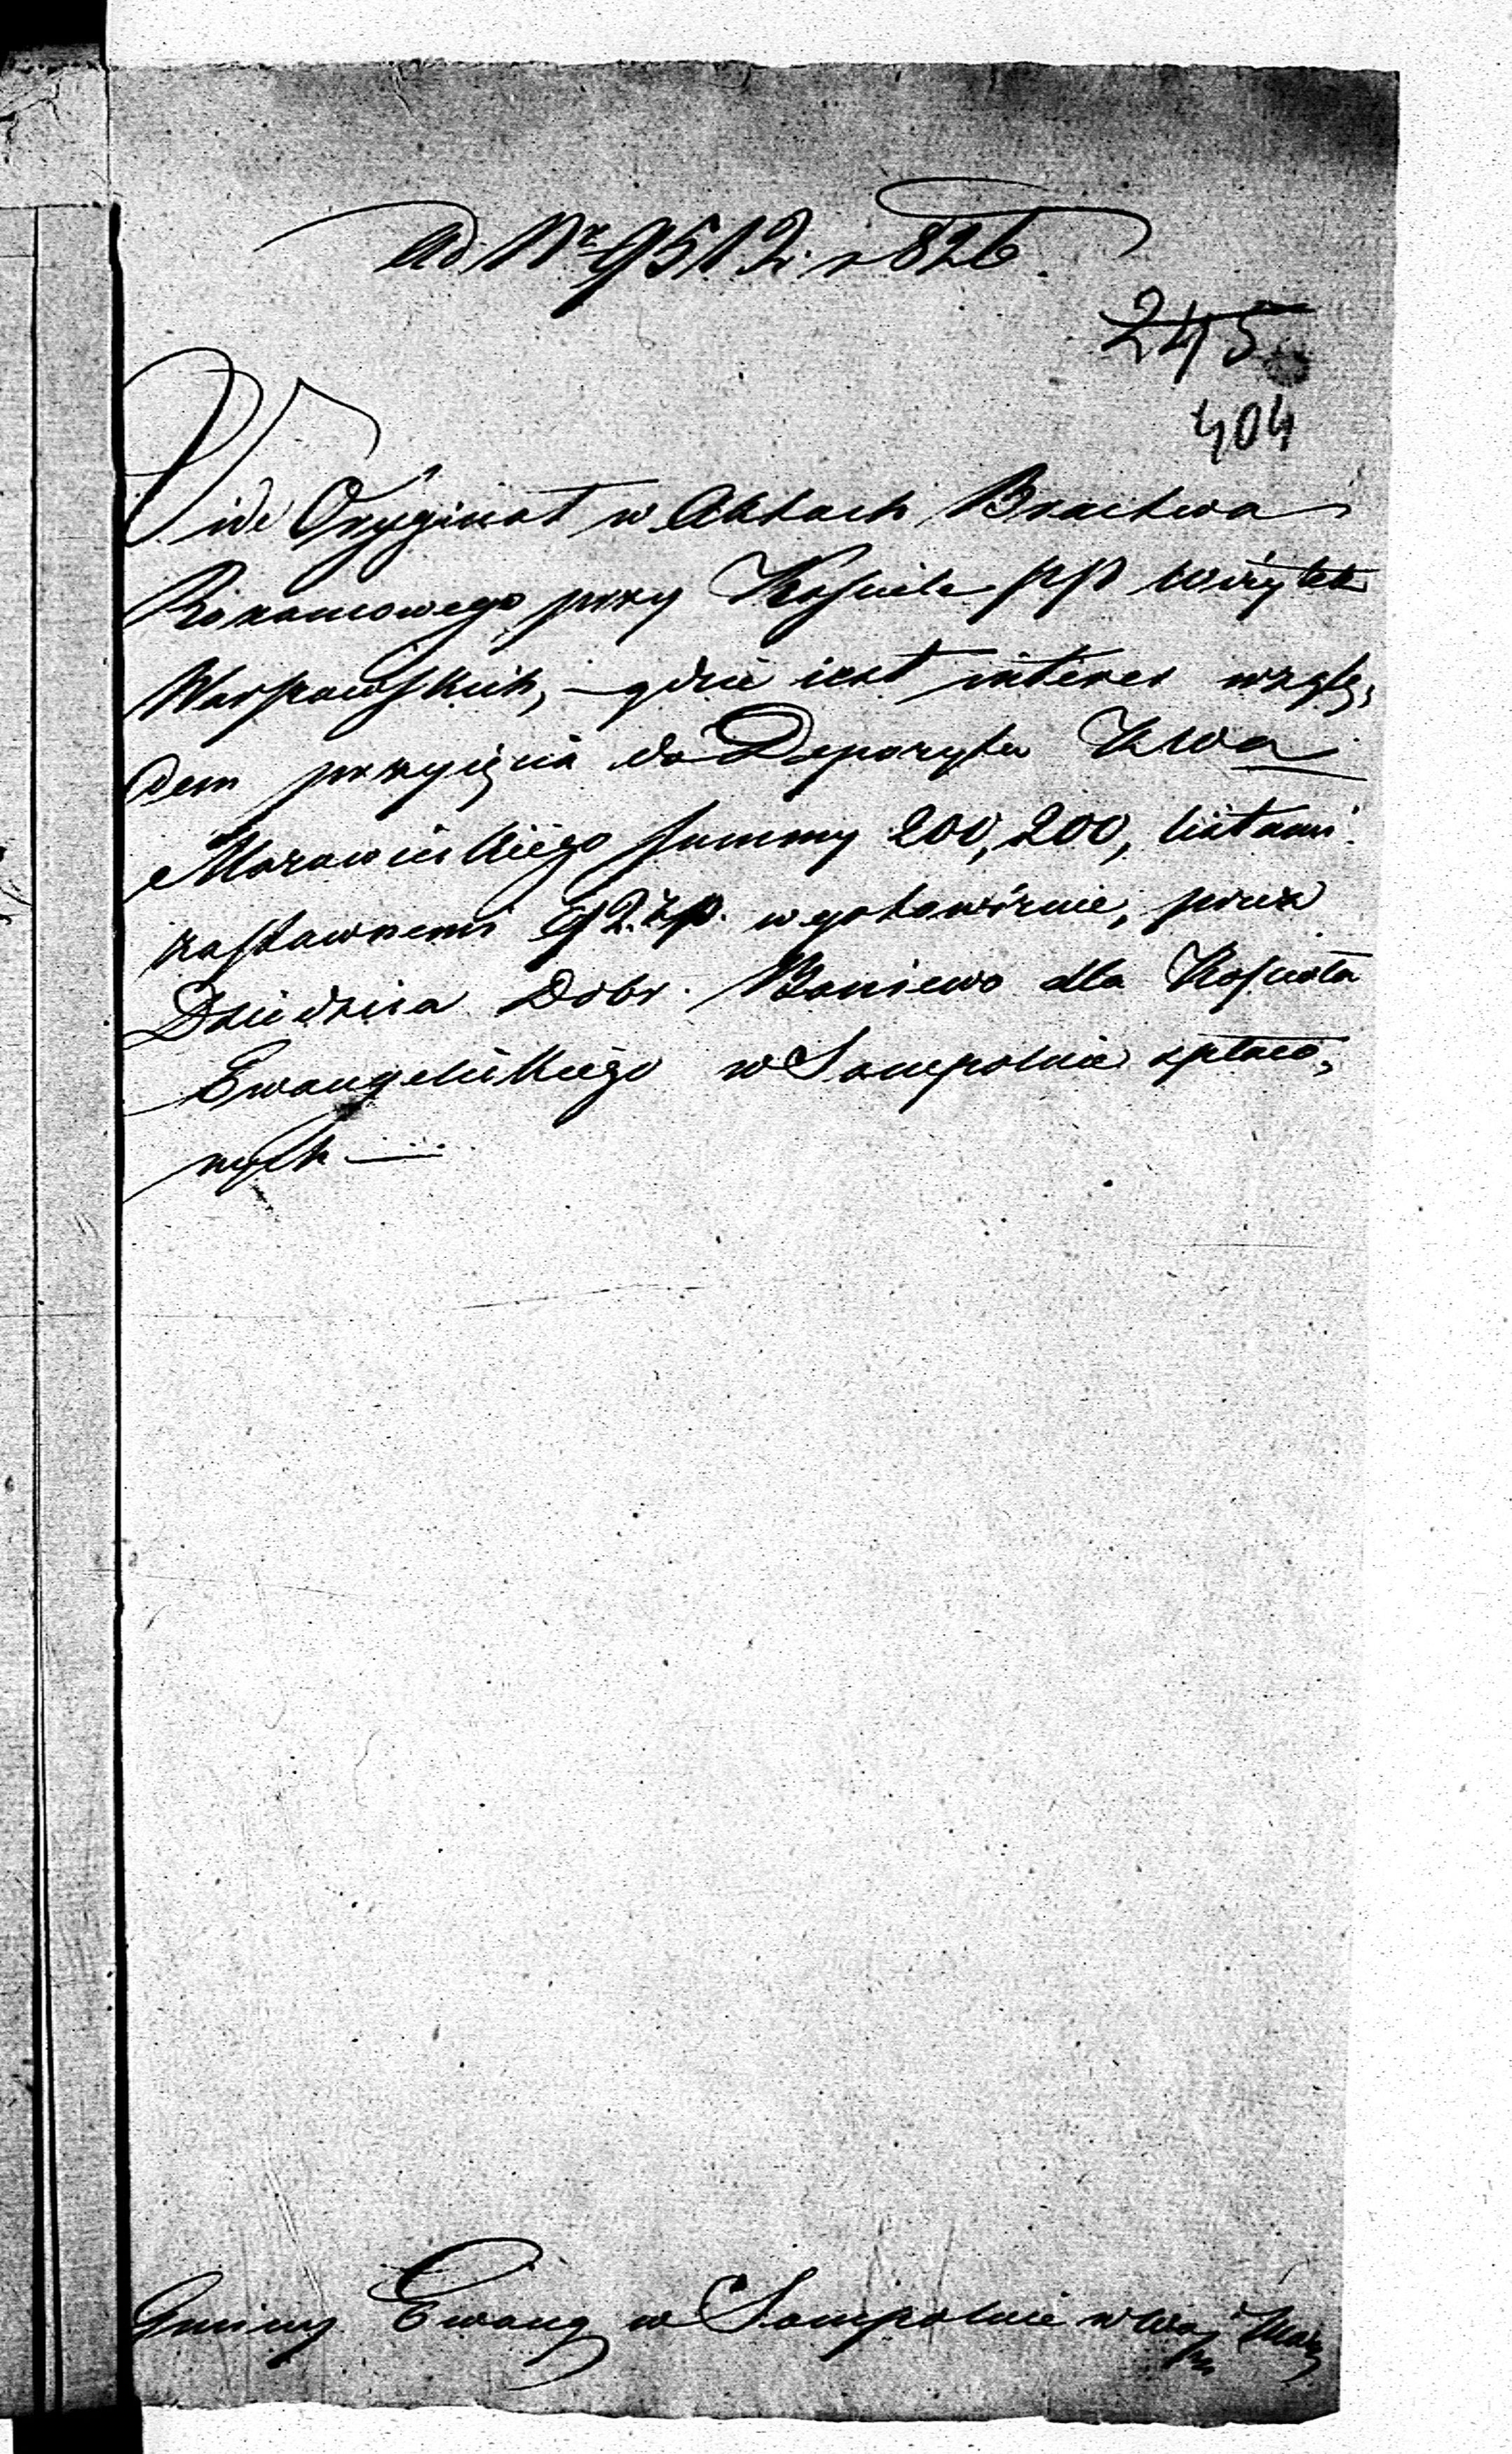 Ad Nr 9512. 1826.
245
404
Vide Oryginał w Aktach Bractwa
Rozancowego przy Kościele PP Wizytek
Warszawskich, – gdzie iest interes wzglę,
dem przyięcia do Depozytu
Morawieckiego Summy 200,200, listami
zastawnemi 92 zp. w gotowiznie, przez
Dziedzica Dobr. Boniewo dla Kościoła
Ewangelickiego w Sompolnie spłaco,
nych —
Gminy Ewang w Sompolnie w Woj